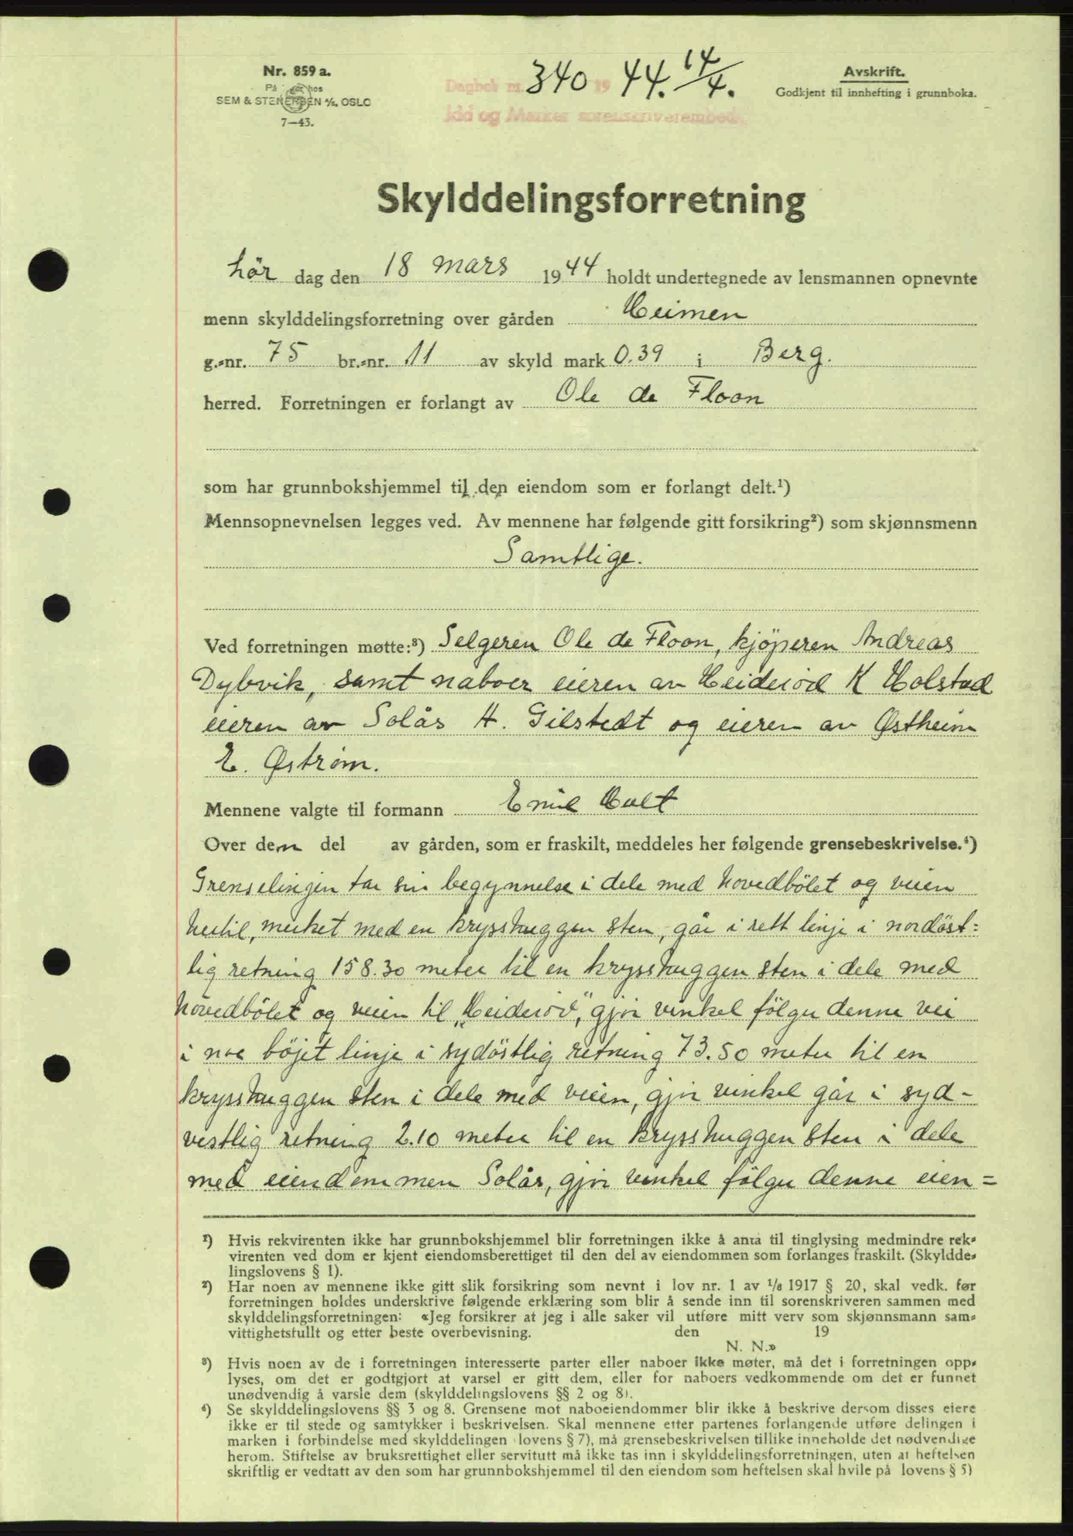 Nr. 859 a.
På lager hos
SEM & STENERSEN A/S, OSLO
7—43.
Dagbok nr. 340 19 44. 14/4.
Idd og Marker sorenskriverembede
Avskrift.
Godkjent til innhefting i grunnboka.
Skylddelingsforretning
hör dag den 18 mars 1944 holdt undertegnede av lensmannen opnevnte
menn skylddelingsforretning over gården Heimen
g.-nr. 75 br.-nr. 11 av skyld mark 0.39 i Berg.
herred. Forretningen er forlangt av Ole de Floon
som har grunnbokshjemmel til den eiendom som er forlangt delt.¹)
Mennsopnevnelsen legges ved. Av mennene har følgende gitt forsikring²) som skjønnsmenn
Samtlige.
Ved forretningen møtte:³) Selgeren Ole de Floon, kjöperen Andreas
Dybvik, samt naboer eieren av Heideröd K Holstad
eieren av Solås H. Gilstedt og eieren av Østheim
E. Øström.
Mennene valgte til formann Emil Holt
Over den del av gården, som er fraskilt, meddeles her følgende grensebeskrivelse.⁴)
Grenselinjen tar sin begynnelse i dele med hovedbölet og veien
hertil, merket med en krysshuggen sten, går i rett linje i nordöst=
lig retning 158.30 meter til en krysshuggen sten i dele med
hovedbölet og veien til „Heideröd", gjör vinkel fölger denne vei
i noe böjet linje i sydöstlig retning 73.50 meter til en
krysshuggen sten i dele med veien, gjör vinkel går i syd-
vestlig retning 2.10 meter til en krysshuggen sten i dele
med eiendommen Solås, gjör vinkel fölger denne eien=
¹) Hvis rekvirenten ikke har grunnbokshjemmel blir forretningen ikke å anta til tinglysing medmindre rek-
virenten ved dom er kjent eiendomsberettiget til den del av eiendommen som forlanges fraskilt. (Skyldde-
lingslovens § 1).
²) Har noen av mennene ikke gitt slik forsikring som nevnt i lov nr. 1 av 1/8 1917 § 20, skal vedk. før
forretningen holdes underskrive følgende erklæring som blir å sende inn til sorenskriveren sammen med
skylddelingsforretningen: «Jeg forsikrer at jeg i alle saker vil utføre mitt verv som skjønnsmann sam-
vittighetsfullt og etter beste overbevisning. den 19
N. N.»
³) Hvis noen av de i forretningen interesserte parter eller naboer ikke møter, må det i forretningen opp-
lyses, om det er godtgjort at varsel er gitt dem, eller for naboers vedkommende om det er funnet
unødvendig å varsle dem (skylddelingslovens §§ 2 og 8).
⁴) Se skylddelingslovens §§ 3 og 8. Grensene mot naboeiendommer blir ikke å beskrive dersom disses eiere
ikke er til stede og samtykker i beskrivelsen. Skal mennene etter partenes forlangende utføre delingen i
marken i forbindelse med skylddelingen (lovens § 7), må grensebeskrivelsen tillike inneholde det nødvendige
herom. Stiftelse av bruksrettighet eller servitutt må ikke tas inn i skylddelingsforretningen, uten at heftelsen
skriftlig er vedtatt av den som har grunnbokshjemmel til den eiendom som heftelsen skal hvile på (lovens § 5)